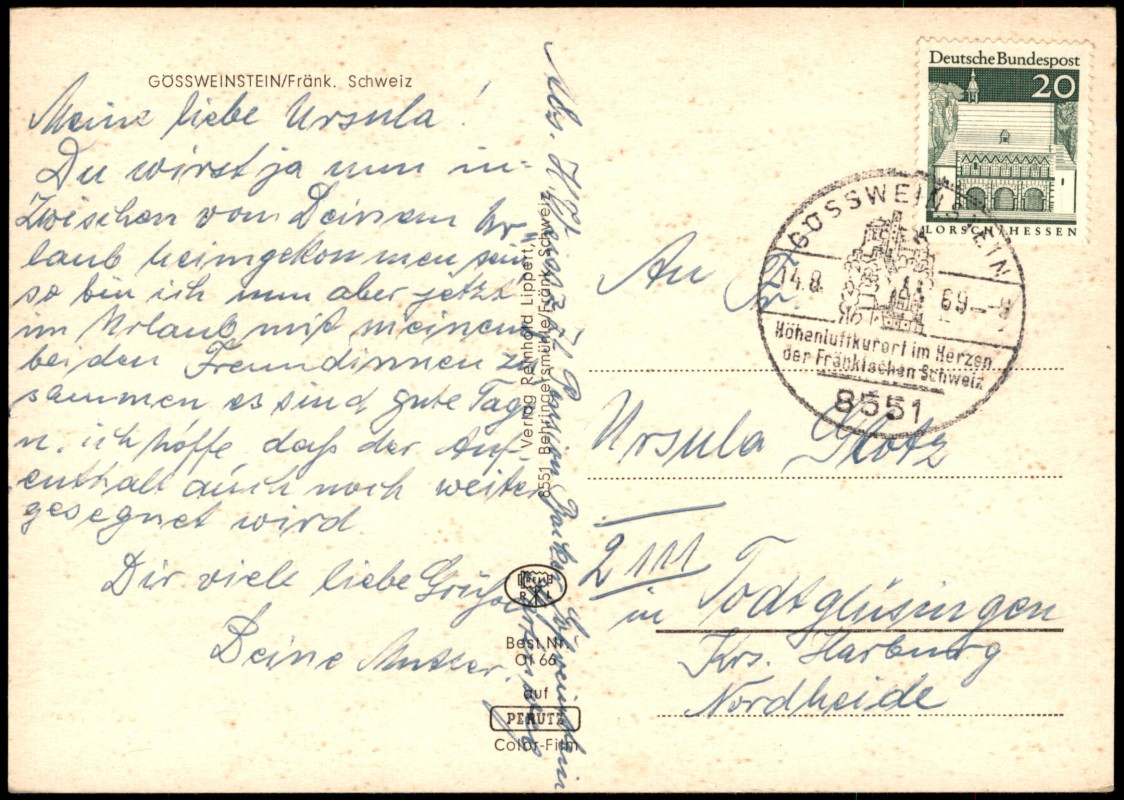 GÖSSWEINSTEIN/Fränk. Schweiz
Meine liebe Ursula!
Du wirst ja nun in-
zwischen von Deinem Ur-
laub heimgekommen sein,
so bin ich nun aber jetzt
im Urlaub mit meinen
beiden Freundinnen zu
sammen es sind gute Tage
n. ich hoffe daß der Auf-
enthalt auch noch weiter
gesegnet wird.
Dir viele liebe Grüße
Deine Mutter.
Abs.
Verlag Reinhold Lippert,
8551 Behringersmühle/Fränk. Schweiz
R L
Best.Nr.
Of 66
auf
PERUTZ
Color-Film
Deutsche Bundespost
20
LORSCH/HESSEN
GÖSSWEINSTEIN
14.8. 69
Höhenluftkurort im Herzen
der Fränkischen Schweiz
8551
An
Ursula Klotz
2111
in Todtglüsingen
Krs. Harburg
Nordheide